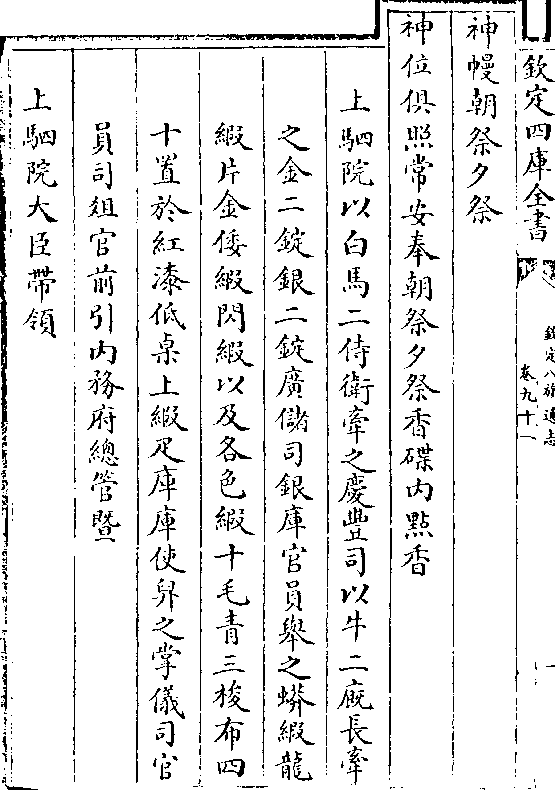 欽定四庫全書
欽定八旗通志
卷九十一
一
神幔朝祭夕祭
神位俱照常安奉朝祭夕祭香碟内㸃香
上駟院以白馬二侍衛牽之慶豐司以牛二廐長牽
之金二錠銀二錠廣儲司銀庫官員舉之蟒緞龍
緞片金倭緞閃緞以及各色緞十毛青三梭布四
十置於紅漆低桌上緞疋庫庫使舁之掌儀司官
員司俎官前引内務府總管暨
上駟院大臣帶領